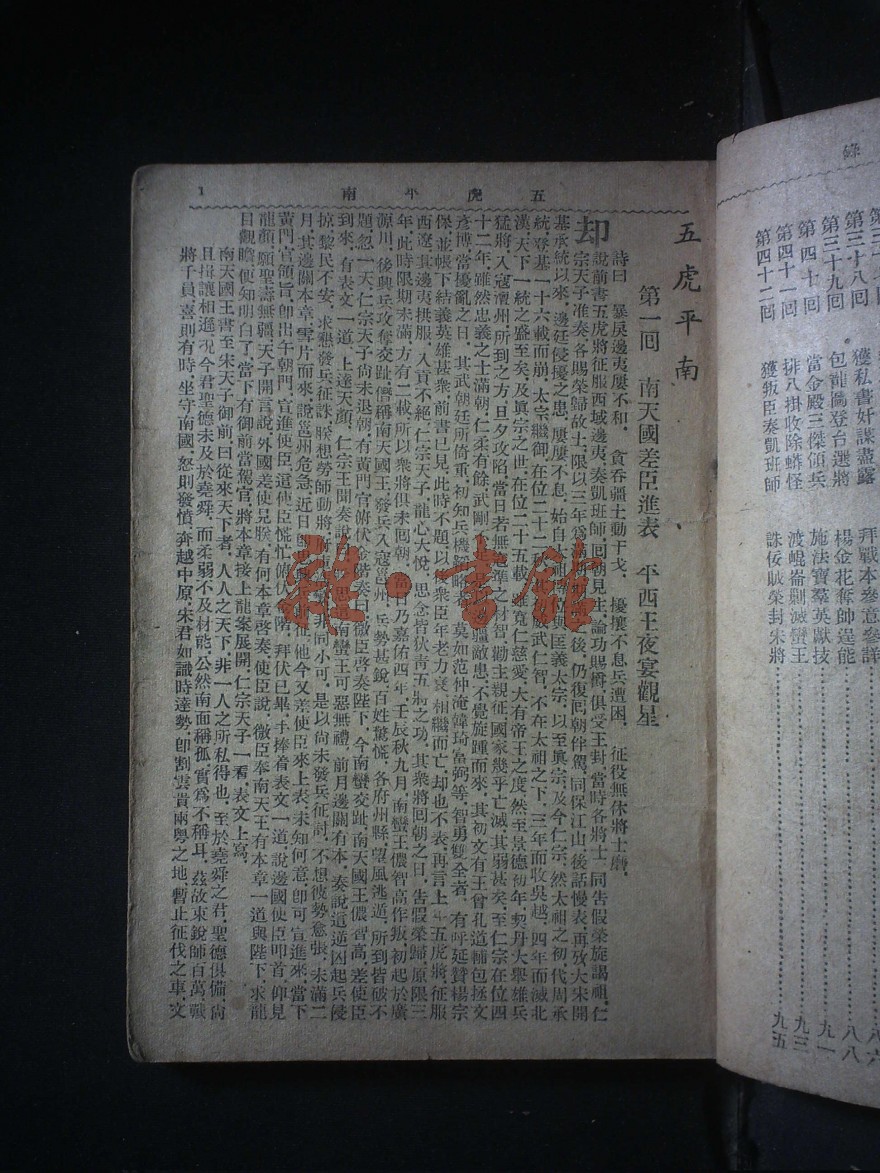 錄
第三十八回 獲私書奸謀盡露 八六
第三十九回 包龍圖登台選將 楊金花奪帥逞能 八八
第四十回 當金殿三傑領兵 施法寶羣英獻技 九一
第四十一回 排八掛收除蟒怪 渡崐崙剿滅蠻王 九三
第四十二回 獲叛臣奏凱班師 誅佞賊榮封朱將 九五
五虎平南
1
五虎平南
第一回 南天國差臣進表 平西王夜宴觀星
詩曰 暴戾邊夷屢不和， 貪吞疆土動干戈， 擾攘不息兵遭困， 征役無休將士磨，
却說前書五虎將征服西域邊夷，奏凱班師，回朝見主，論功賜爵，俱受王封，當時各將士，同告假榮旋謁祖，仁
宗天子准奏，各賜榮歸故土，限以三年爲 期滿之後，仍復回朝伴駕，同保江山，後話慢表，再攷大宋開
基承統以來，邊廷侵擾之患，屢屢不息，始自 與匡義太宗，以至眞宗，及今仁宗，然太祖之初，代周承
統，登基一十六載而崩，太宗繼御，在位二十二 武仁智，不在太祖之下，三年而收吳越，四年而滅北
漢，天下一統之盛至矣，及眞宗之世，在位二十五載， 寬仁慈愛，大有帝王之度，然至景德初年，契丹大舉雄兵
猛將，入寇澶州，所到之方，旦夕攻陷，當日若無 準之材智，勸主親征，國家幾乎亡滅，其弱甚矣，至仁宗在位四
十二年，雖然忠義之士滿朝，仁柔有餘，武剛 疆敵患，不覺旋踵而來，其初文有王曾孔道輔包拯文
彥博，當擾亂之日，其武朝廷所倚重，初知兵機 略者，莫如范仲淹韓琦富弼等，智勇雙全者，有呼延贊楊宗
保，並帳下結義英雄甚衆，前書已見，此時不題，以 衆臣年老力衰，相繼而亡，却也不表，再言上 五虎將征服
西遼，其邊夷拱服，入貢不絕，仁宗天子，龍心大悅，思念皆狄青五將之功，其衆將回朝之日，告假榮歸，原限三
年，此時限期未滿，方有二載，所以衆將俱未回朝，當日乃嘉佑四年，壬辰秋九月，南蠻王儂智高作叛，初起於廣
源川，後興兵攻奪交趾，僭稱南天國王，發兵入寇邕州，兵勢甚銳，百姓驚慌，各府州縣，望風逃遁，所到皆破不
題，忽一天，仁宗天子尙未退朝，有黃門官俯伏金階，奏曰，微臣啓奏陛下，今南蠻交趾，南天國王儂智高，差使臣
到來，有表文一道，上達天顔，仁宗王聞奏說 思這南蠻王可惡無禮，前月邊關有本，奏說這逆凶起兵侵
掠，黎民不安，求懇發兵征誅，朕想勞師動將 非同小可，是以尙未發兵征討，不想彼勢愈張，未滿二
月，其邊關本章，雪片而來，說邕州危急，近日 征他，今又差使臣來上表，未知何意，卽可宣進來，當下
黃門官領旨，卽出午朝門，宣進使臣，這使臣慌忙俯伏金階，拜伏已畢，手捧着表文一道，說邊國使臣叩首，仰見
龍顔，願聖壽無疆，天子開言說，外國差使見朕，有何本章啓奏，使臣說，微臣奉南天王有本章一道，與陛下，求龍
目觀瞻，便知明白了，當下有御前當駕官，將本章接上龍案展開，仁宗天子一看，表文上寫，
南天國王書至宋天子御前，曰從來天下者，人人之天下，非一人之所私得也，至於堯舜之君，聖德俱備，尙
且揖讓相遜，況今君聖德未及於堯舜，而柔弱不及材能，公然南面稱孤，實爲不稱耳，玆故東銳師百萬，戰
將千員，喜則有時，坐守南國，怒則發憤，奔越中原，宋君如識時達勢，卽割雲貴兩粤之地，暫止征伐之車，文
雜·書館